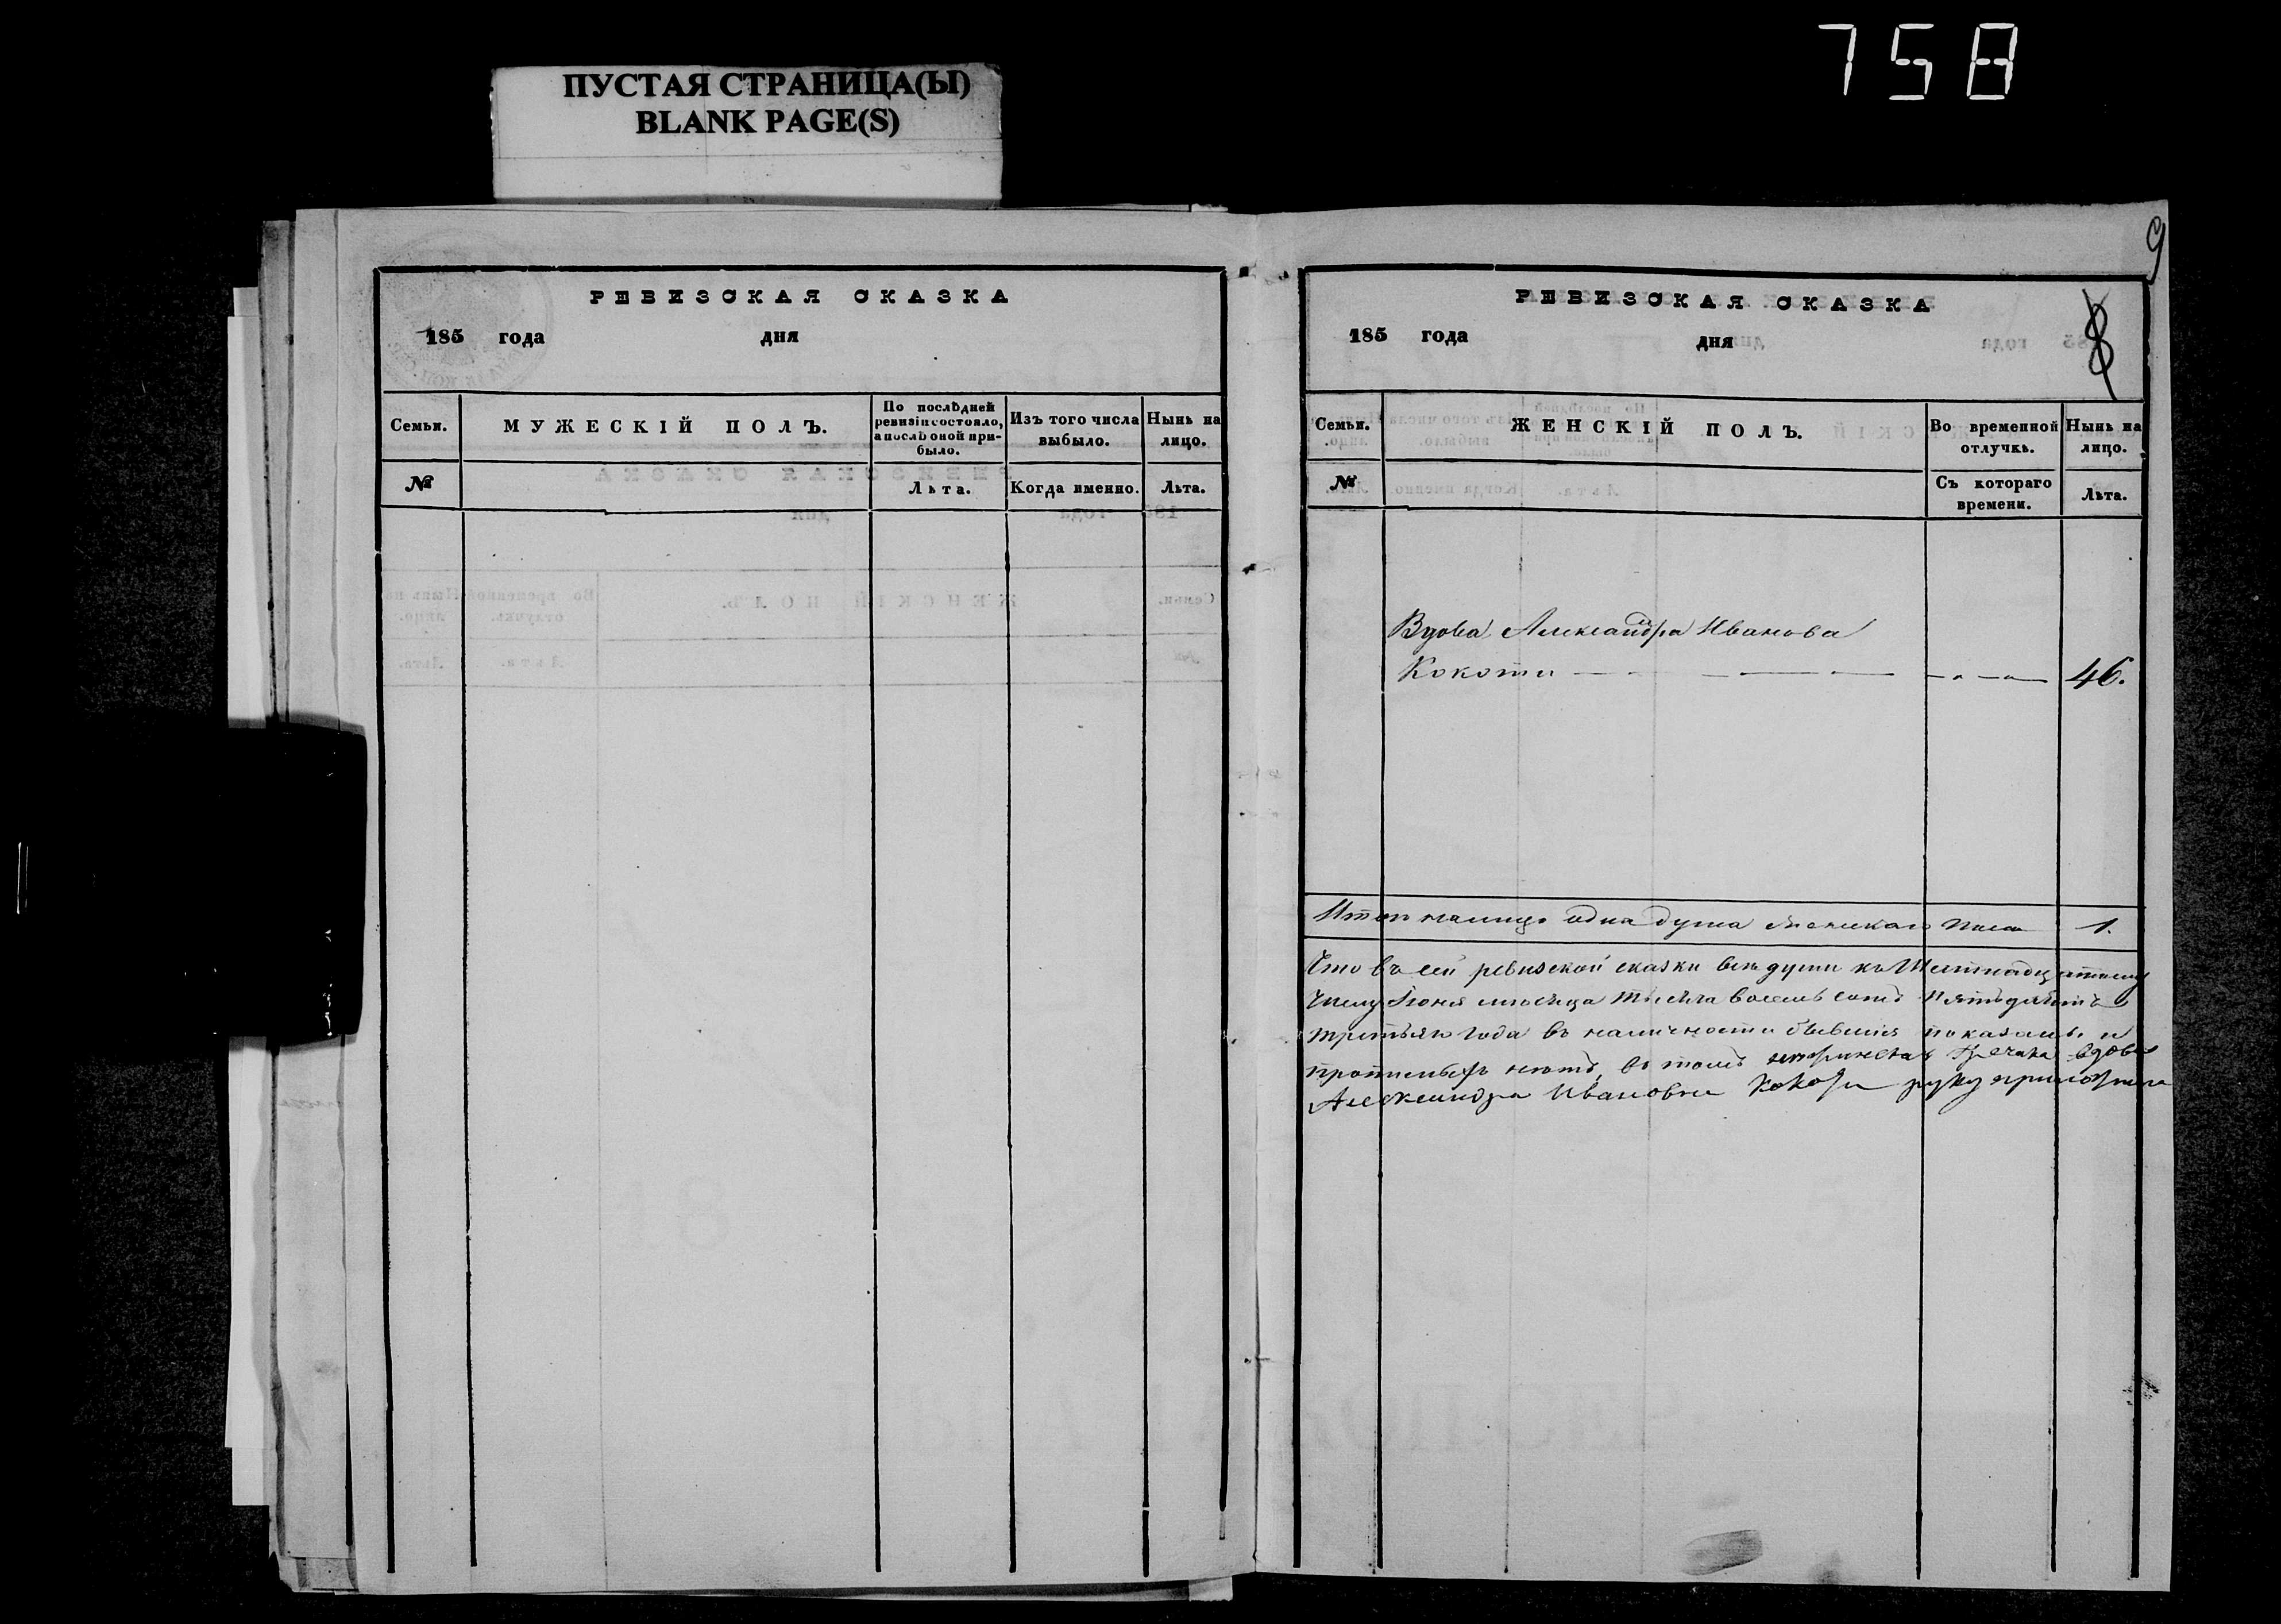 758
ПУСТАЯ СТРАНИЦА(Ы)
BLANK PAGE(S)
РЕВИЗСКАЯ СКАЗКА
185 года дня
Семьи.
МУЖЕСКІЙ ПОЛЪ.
По послѣдней ревизіи состояло, а послѣ оной при-было.
Изъ того числа выбыло.
Нынѣ на лицо.
№
Лѣта.
Когда именно.
Лѣта.
9
РЕВИЗСКАЯ СКАЗКА
185 года дня
8
Семьи.
ЖЕНСКІЙ ПОЛЪ.
Во временной отлучкѣ.
Нынѣ на лицо.
№
Съ котораго времени.
Лѣта.
Вдова Александра Иванова
Кокоти 46.
Итого налицо одна душа женскаго пола 1.
Что въ сей ревизской сказки всѣ души къ Шестнадцатому
числу Іюня мѣсяца тысяча восемь сотъ пятьдесятъ
третьяго года въ наличности бывшія показаны и
нѣтъ, въ томъ вдова
Александра Ивановна Кокоти руку приложила